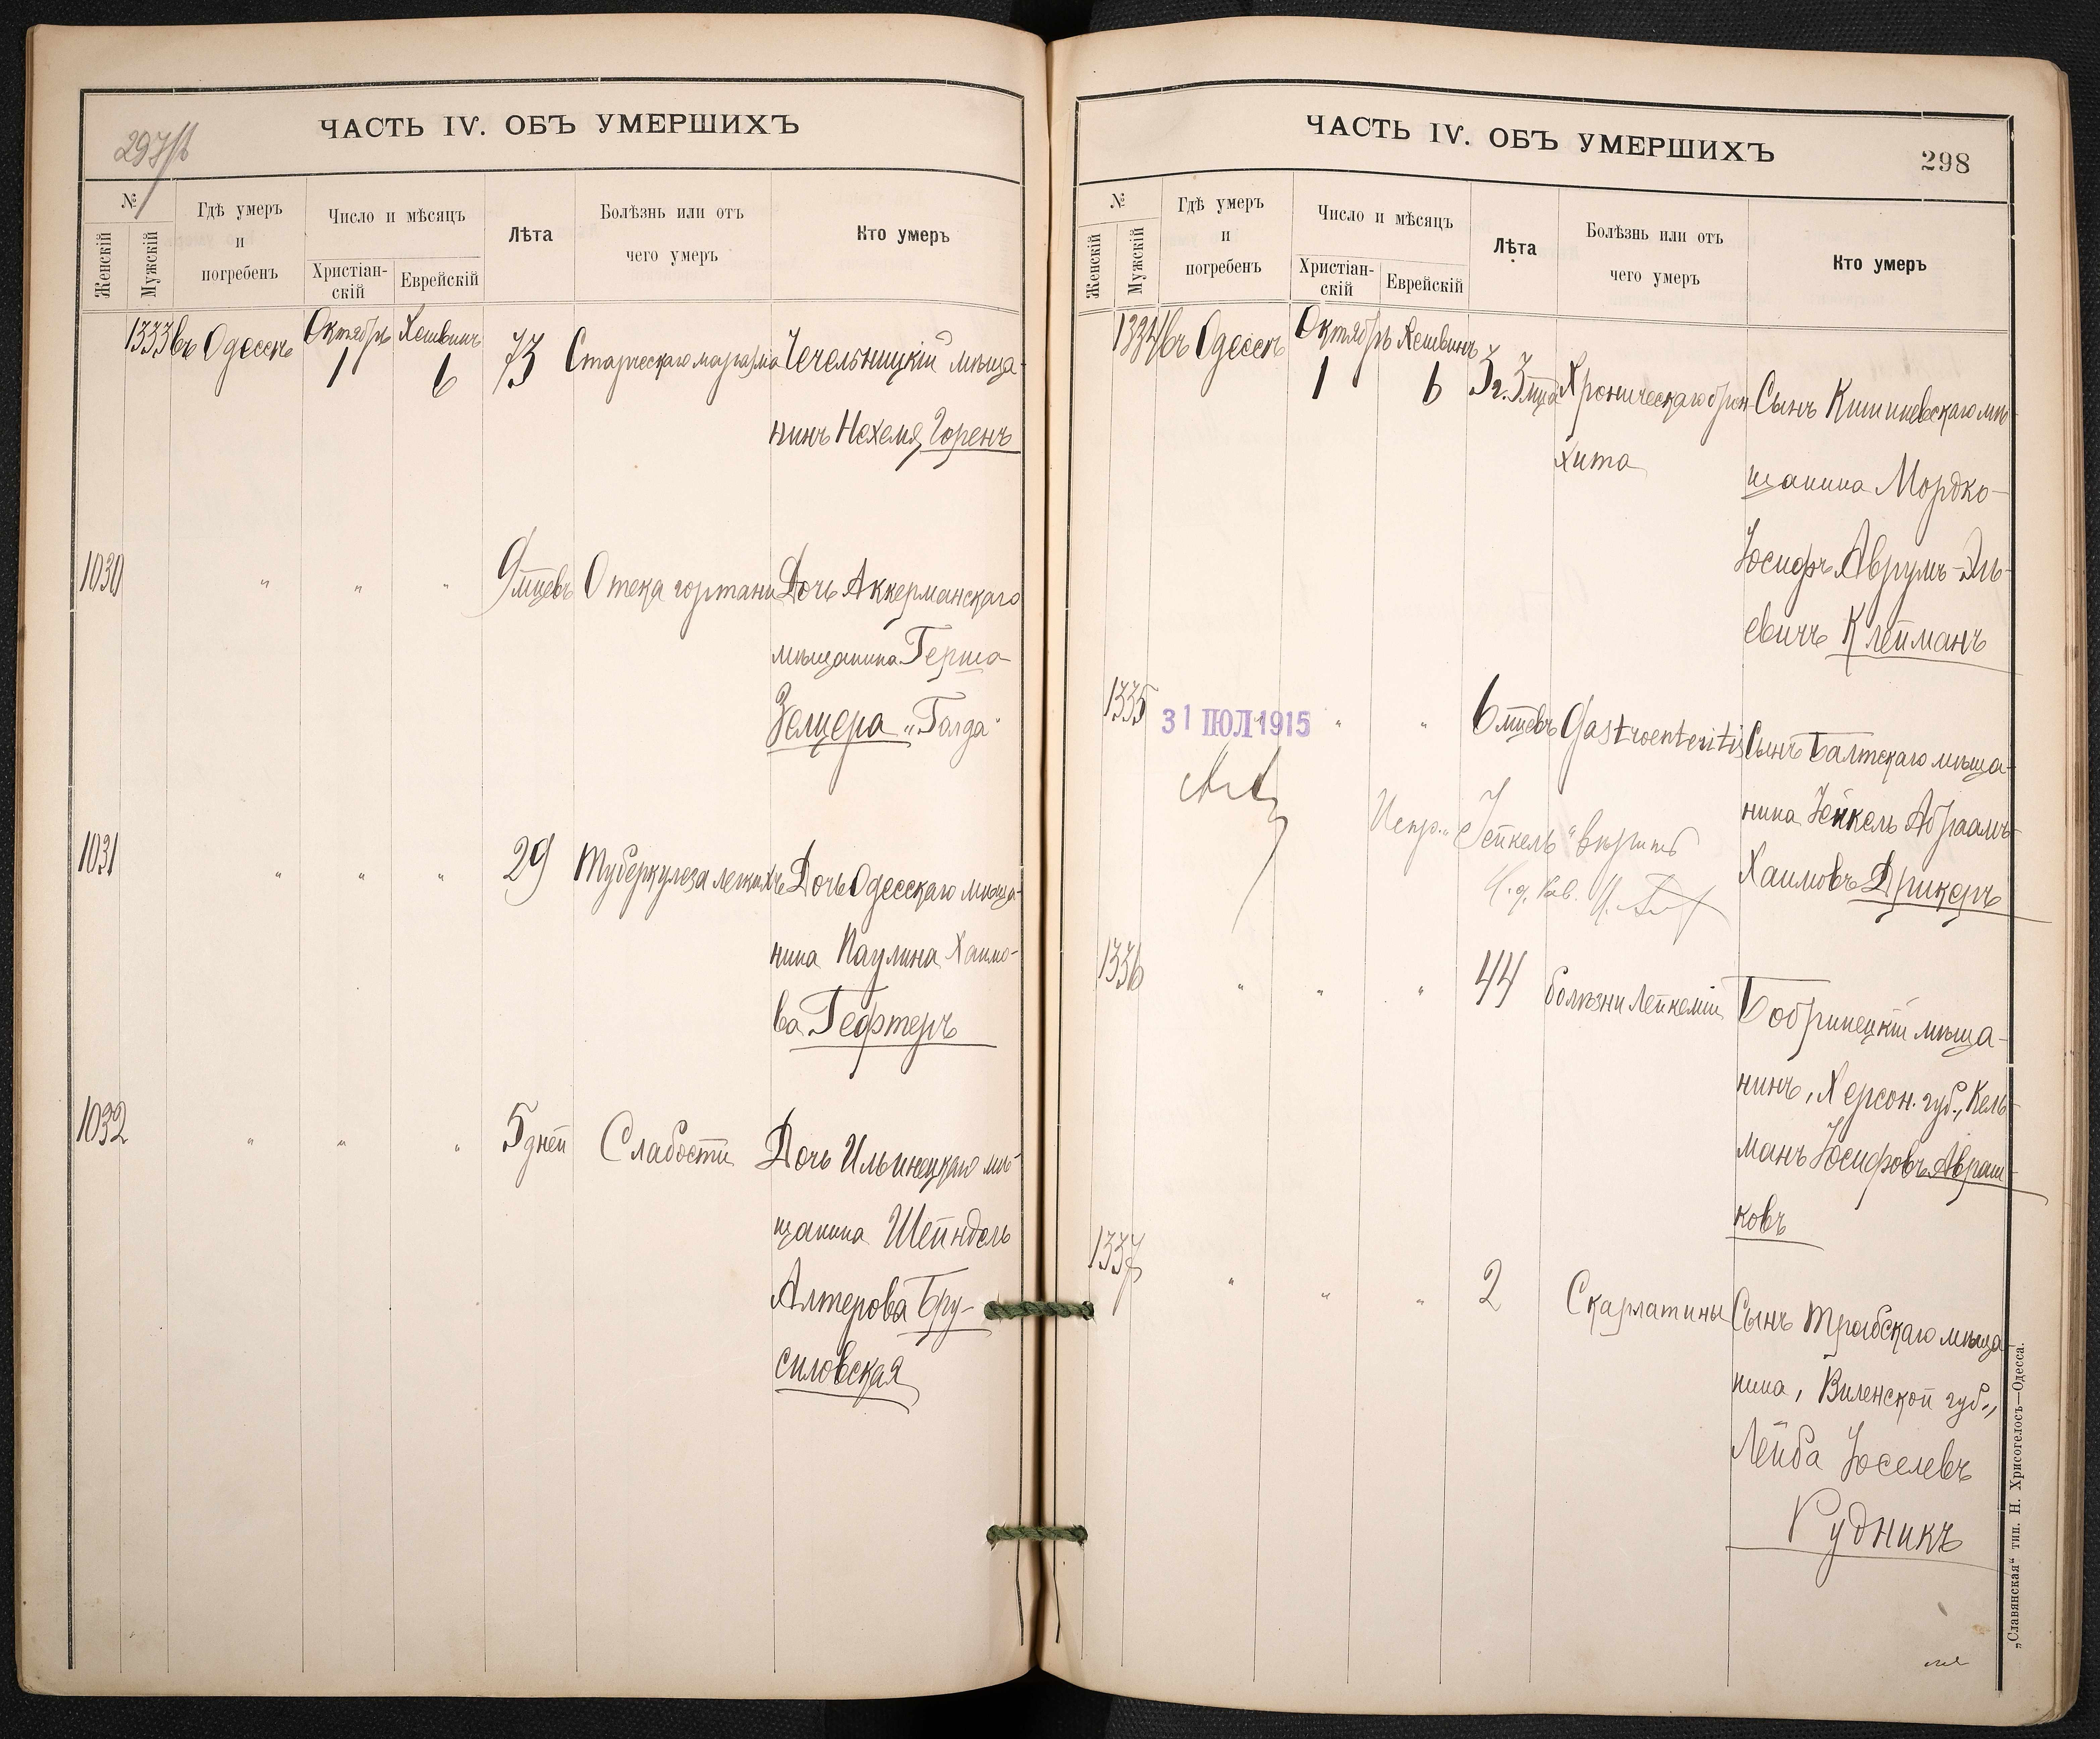 297/б
ЧАСТЬ IV. ОБЪ УМЕРШИХЪ
№
Женскій
Мужскій
Гдѣ умеръ
и
погребенъ
Число и мѣсяцъ
Христіан-
скій
Еврейскій
Лѣта
Болѣзнь или отъ
чего умеръ
Кто умеръ
1333 въ Одессѣ Октябрь 1 Хешванъ 6 73 Старческаго маразма Чечельницкій мѣща-
нинъ Нехемя Горенъ
1030 " " " 9 мѣцевъ Отека гортани Дочь Аккерманскаго
мѣщанина Герша
Зельцера „Голда“
1031 " " " 29 Туберкулеза легкихъ Дочь Одесскаго мѣща-
нина Паулина Хаимо-
ва Гефтеръ
1032 " " " 5 дней Слабости Дочь Ильинецкаго мѣ-
щанина Шейндель
Алтерова Бру-
силовская
ЧАСТЬ IV. ОБЪ УМЕРШИХЪ
298
№
Женскій
Мужскій
Гдѣ умеръ
и
погребенъ
Число и мѣсяцъ
Христіан-
скій
Еврейскій
Лѣта
Болѣзнь или отъ
чего умеръ
Кто умеръ
1334 въ Одессѣ Октябрь 1 Хешванъ 6 3 г. 3 мѣца Хроническаго брон- Сынъ Кишиневскаго мѣ-
хита
щанина Мордко-
Іосифъ Аврумъ-Эль-
евичъ Клейманъ
1335 " " " 6 мѣцевъ Gastroenteritis Сынъ Балтскаго мѣща-
31 ІЮЛ 1915
нина Іенкель Абраамъ-
Хаимовъ Дрикеръ
Испр. „Іейкель“ вѣрить
1336 " " " 44 болѣзни Лейкеміи Бобринецкій мѣща-
нинъ, Херсон. губ., Кель-
манъ Іосифовъ Авраш-
ковъ
1337 " " " 2 Скарлатины Сынъ Трабскаго мѣща-
нина, Виленской губ.,
Лейба Іоселевъ
Рудникъ
„Славянская“ тип. Н. Хрисогелосъ—Одесса.